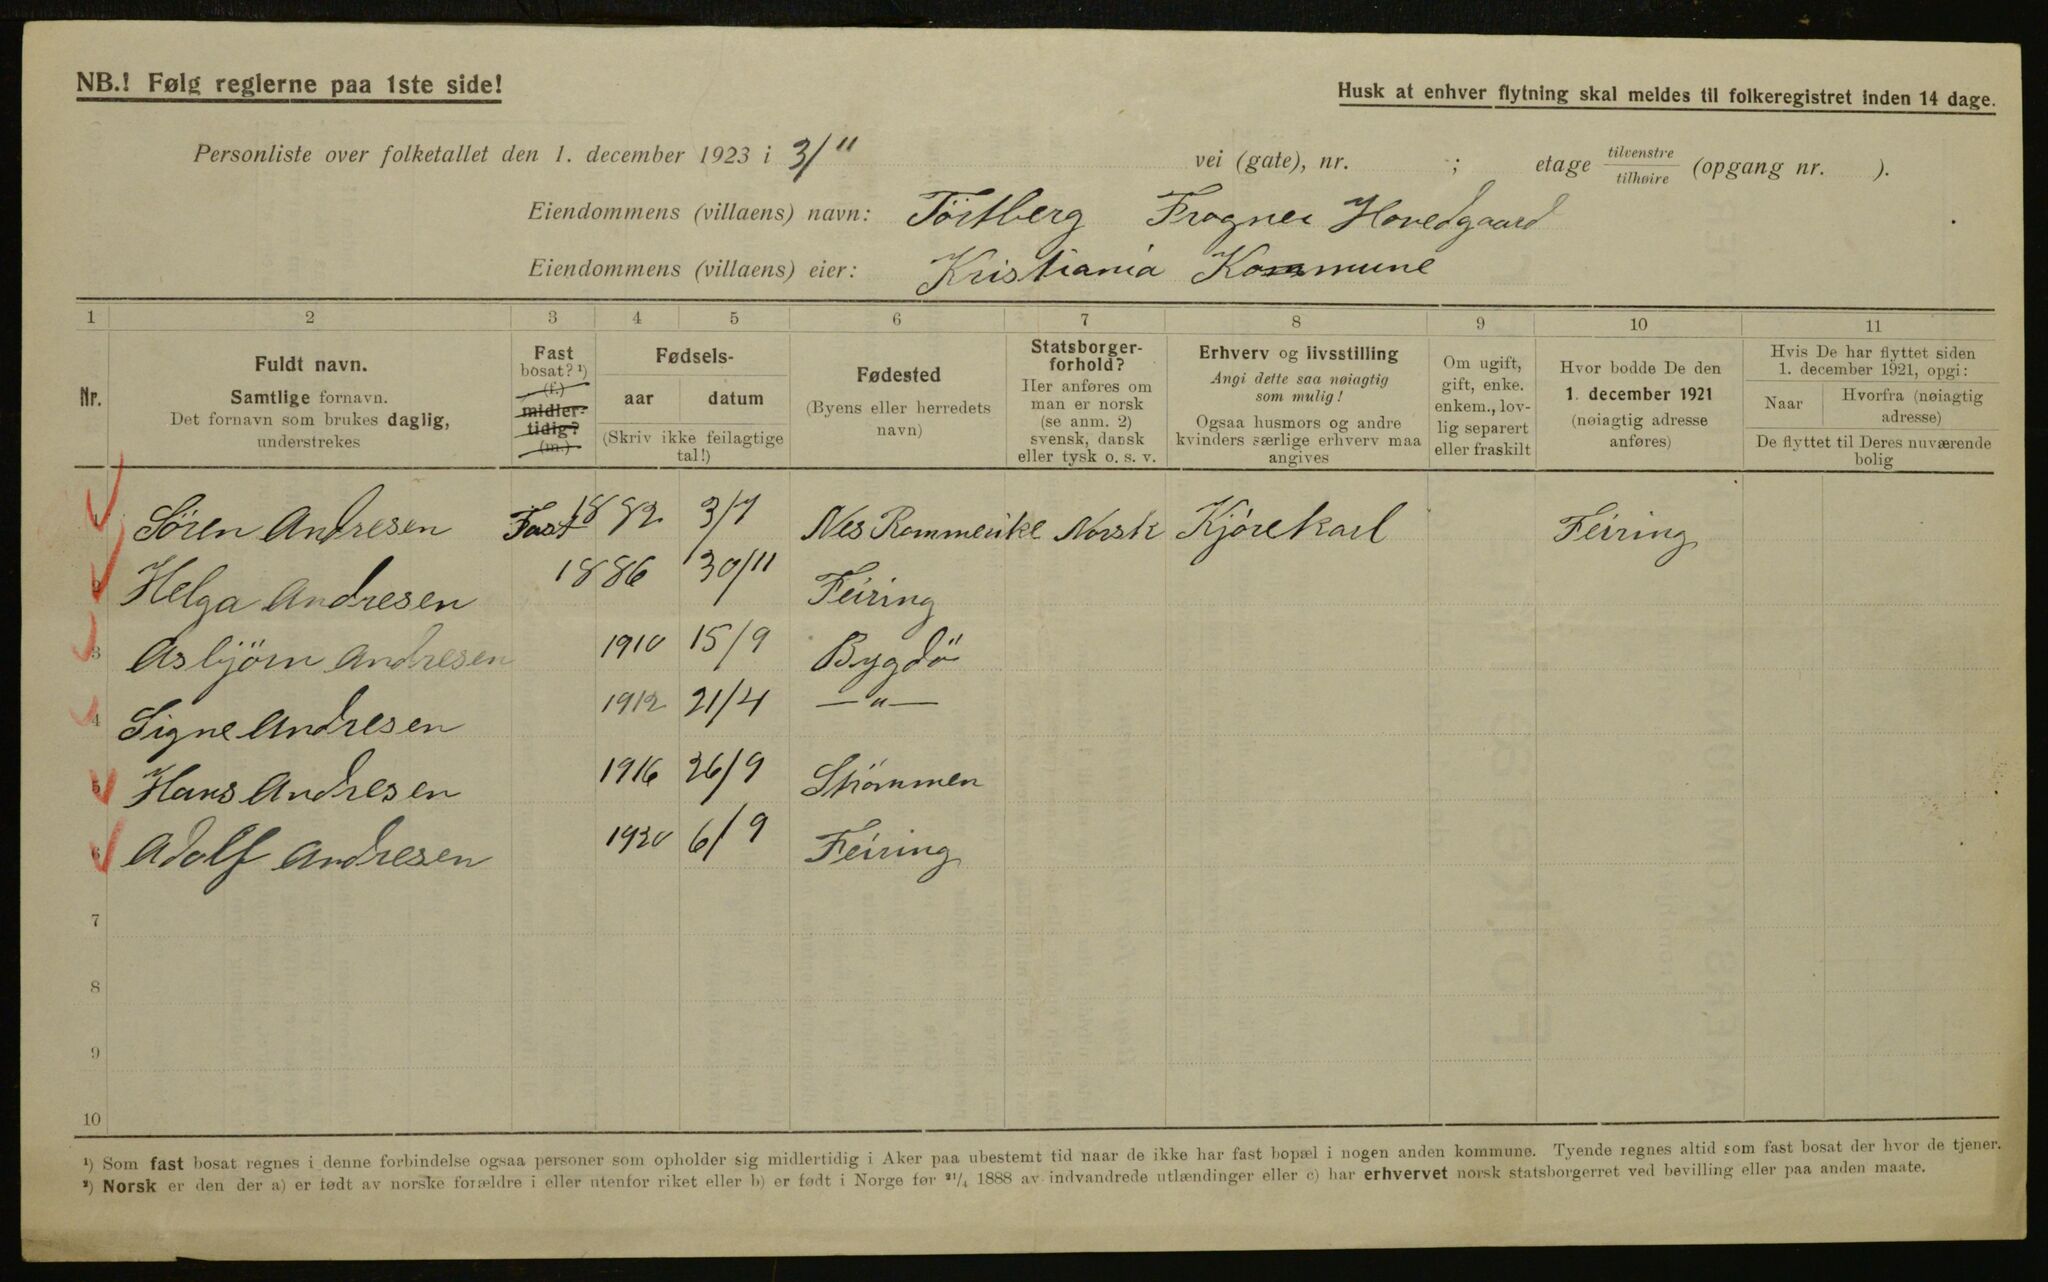 NB.! Følg reglerne paa 1ste side!
Husk at enhver flytning skal meldes til folkeregistret inden 14 dage.
Personliste over folketallet den 1. december 1923 i 3/" vei (gate), nr. ; etage tilvenstre tilhøire (opgang nr. ).
Eiendommens (villaens) navn: Törtberg Frogner Hovedgaard
Eiendommens (villaens) eier: Kristiania Kommune
1 2 3 4 5 6 7 8 9 10 11
Nr.
Fuldt navn.
Samtlige fornavn.
Det fornavn som brukes daglig,
understrekes
Fast
bosat? ¹)
(f.)
midler-
tidig?
(m.)
Fødsels-
aar datum
(Skriv ikke feilagtige
tal!)
Fødested
(Byens eller herredets
navn)
Statsborger-
forhold?
Her anføres om
man er norsk
(se anm. 2)
svensk, dansk
eller tysk o. s. v.
Erhverv og livsstilling
Angi dette saa nøiagtig
som mulig!
Ogsaa husmors og andre
kvinders særlige erhverv maa
angives
Om ugift,
gift, enke.
enkem., lov-
lig separert
eller fraskilt
Hvor bodde De den
1. december 1921
(nøiagtig adresse
anføres)
Hvis De har flyttet siden
1. december 1921, opgi:
Naar
Hvorfra (nøiagtig
adresse)
De flyttet til Deres nuværende
bolig
1 Sören Andresen Fast 1882 3/7 Nes Rommerike Norsk Kjörekarl Feiring
2 Helga Andresen 1886 30/11 Feiring
3 Asbjörn Andresen 1910 15/9 Bygdö
4 Signe Andresen 1912 21/4 — " —
5 Hans Andresen 1916 26/9 Strömmen
6 Adolf Andresen 1920 6/9 Feiring
7
8
9
10
¹) Som fast bosat regnes i denne forbindelse ogsaa personer som opholder sig midlertidig i Aker paa ubestemt tid naar de ikke har fast bopæl i nogen anden kommune. Tyende regnes altid som fast bosat der hvor de tjener.
²) Norsk er den der a) er født av norske forældre i eller utenfor riket eller b) er født i Norge før ²¹/₄ 1888 av indvandrede utlændinger eller c) har erhvervet norsk statsborgerret ved bevilling eller paa anden maate.